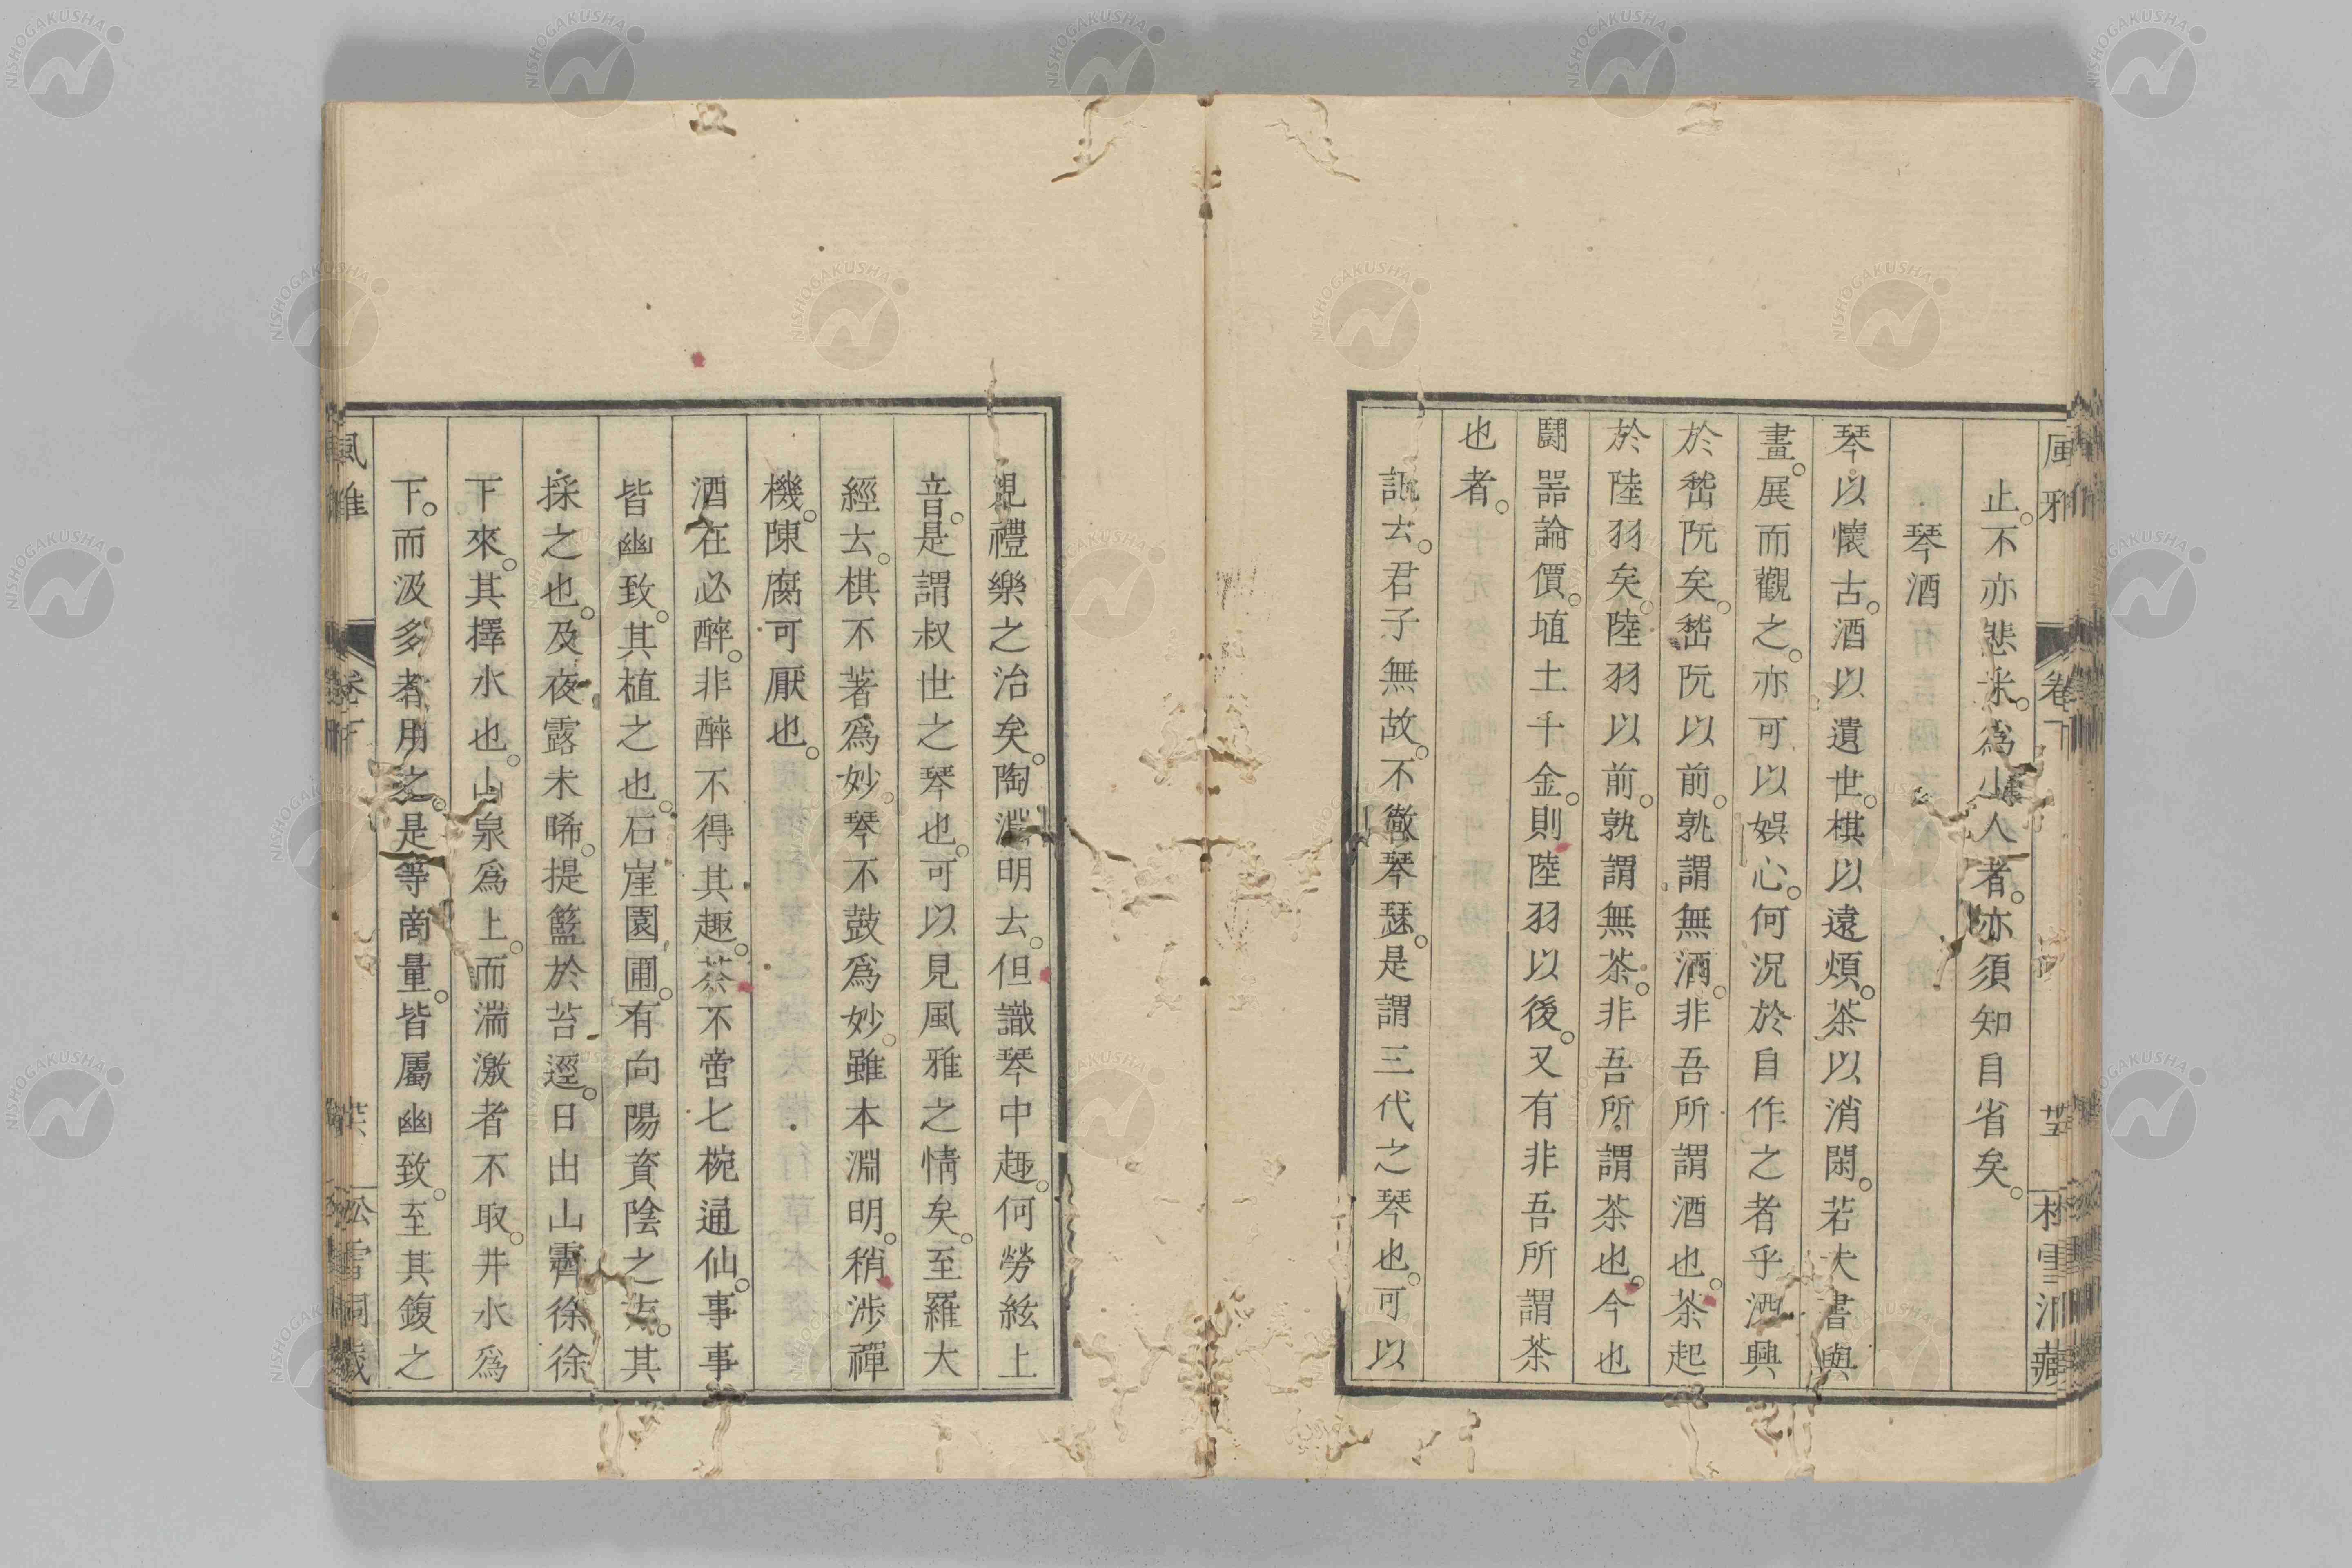 止。不亦悲。爲山人者。亦須知自省矣。
琴酒
琴以懷古。酒以遺世。棋以遠煩。茶以消閑。若夫書與
畫。展而觀之。亦可以娛心。何況於自作之者乎。酒興
於嵆阮矣。嵆阮以前。孰謂無酒。非吾所謂酒也。茶起
於陸羽矣。陸羽以前。孰謂無茶。非吾所謂茶也。今也
鬪器論價。埴土千金。則陸羽以後。又有非吾所謂茶
也者。
誠云。君子無故。不徹琴瑟。是謂三代之琴也。可以
見禮樂之治矣。陶淵明云。但識琴中趣。何勞絃上
音。是謂叔世之琴也。可以見風雅之情矣。至羅大
經云。棋不著爲妙。琴不鼓爲妙。雖本淵明。稍涉禪
機。陳腐可厭也。
酒在必醉。非醉不得其趣。茶不啻七椀通仙。事事
皆幽致。其植之也。石崖園圃。有向陽資陰之法。其
採之也。及夜露未晞。提籃於苔逕。日出山霽。徐徐
下來。其擇水也。山泉爲上。而湍激者不取。井水爲
下。而汲多者用之。是等商量。皆屬幽致。至其鍑之
風雅
卷下
松雪洞藏
NISHOGAKUSHA